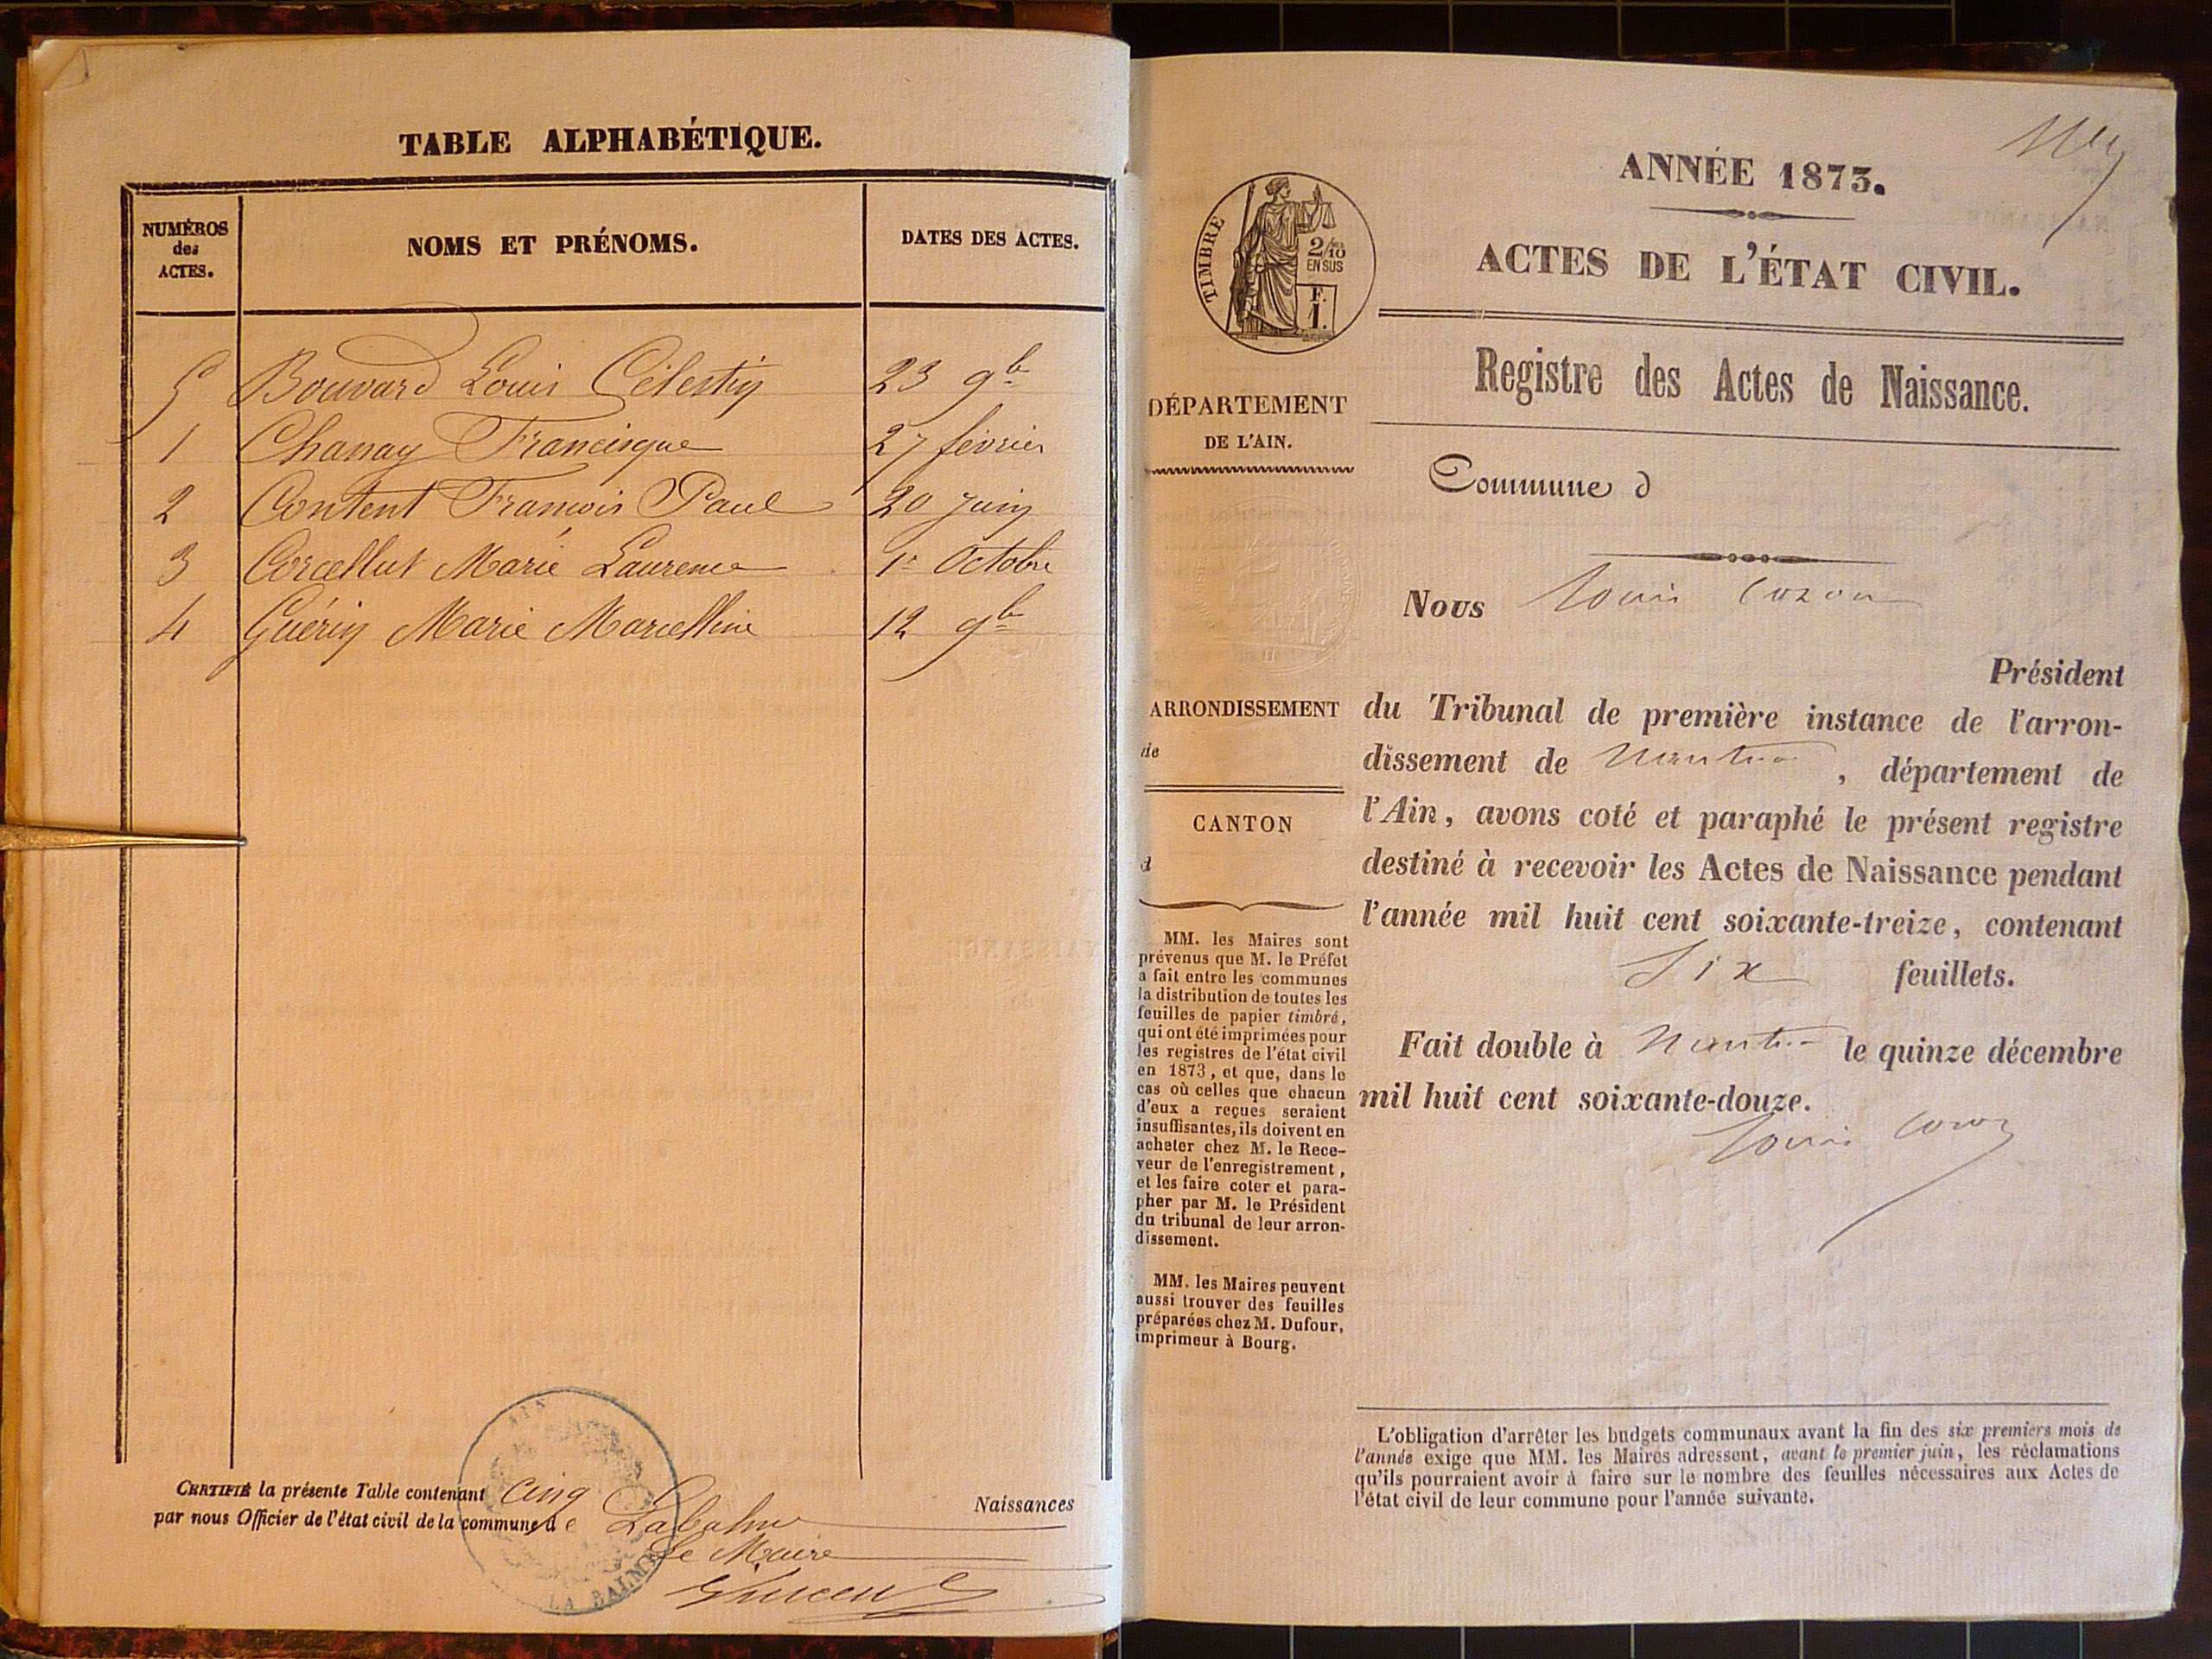 TABLE ALPHABÉTIQUE.
NUMÉROS
des
ACTES.
NOMS ET PRÉNOMS.
DATES DES ACTES.
5 Bouvard Louis Célestin 23 9b
1 Chanay Francisque 27 février
2 Content François Paul 20 Juin
3 Corcellut Marie Laurence 1r Octobre
4 Guérin Marie Marcelline 12 9b
CERTIFIÉ la présente Table contenant cinq Naissances
par nous Officier de l'état civil de la commune de Labalme
Le Maire
Vincent
AIN
LA BALME
ANNÉE 1873.
ACTES DE L'ÉTAT CIVIL.
TIMBRE
2/10
EN SUS
F.
1.
Registre des Actes de Naissance.
DÉPARTEMENT
DE L'AIN.
Commune d
Nous Louis Cozon
Président
ARRONDISSEMENT
de
CANTON
d
du Tribunal de première instance de l'arron-
dissement de Nantua, département de
l'Ain, avons coté et paraphé le présent registre
destiné à recevoir les Actes de Naissance pendant
l'année mil huit cent soixante-treize, contenant
Six feuillets.
Fait double à Nantua le quinze décembre
mil huit cent soixante-douze.
Louis Cozon
MM. les Maires sont
prévenus que M. le Préfet
a fait entre les communes
la distribution de toutes les
feuilles de papier timbré,
qui ont été imprimées pour
les registres de l'état civil
en 1873, et que, dans le
cas où celles que chacun
d'eux a reçues seraient
insuffisantes, ils doivent en
acheter chez M. le Rece-
veur de l'enregistrement,
et les faire coter et para-
pher par M. le Président
du tribunal de leur arron-
dissement.
MM. les Maires peuvent
aussi trouver des feuilles
préparées chez M. Dufour,
imprimeur à Bourg.
L'obligation d'arrêter les budgets communaux avant la fin des six premiers mois de
l'année exige que MM. les Maires adressent, avant le premier juin, les réclamations
qu'ils pourraient avoir à faire sur le nombre des feuilles nécessaires aux Actes de
l'état civil de leur commune pour l'année suivante.